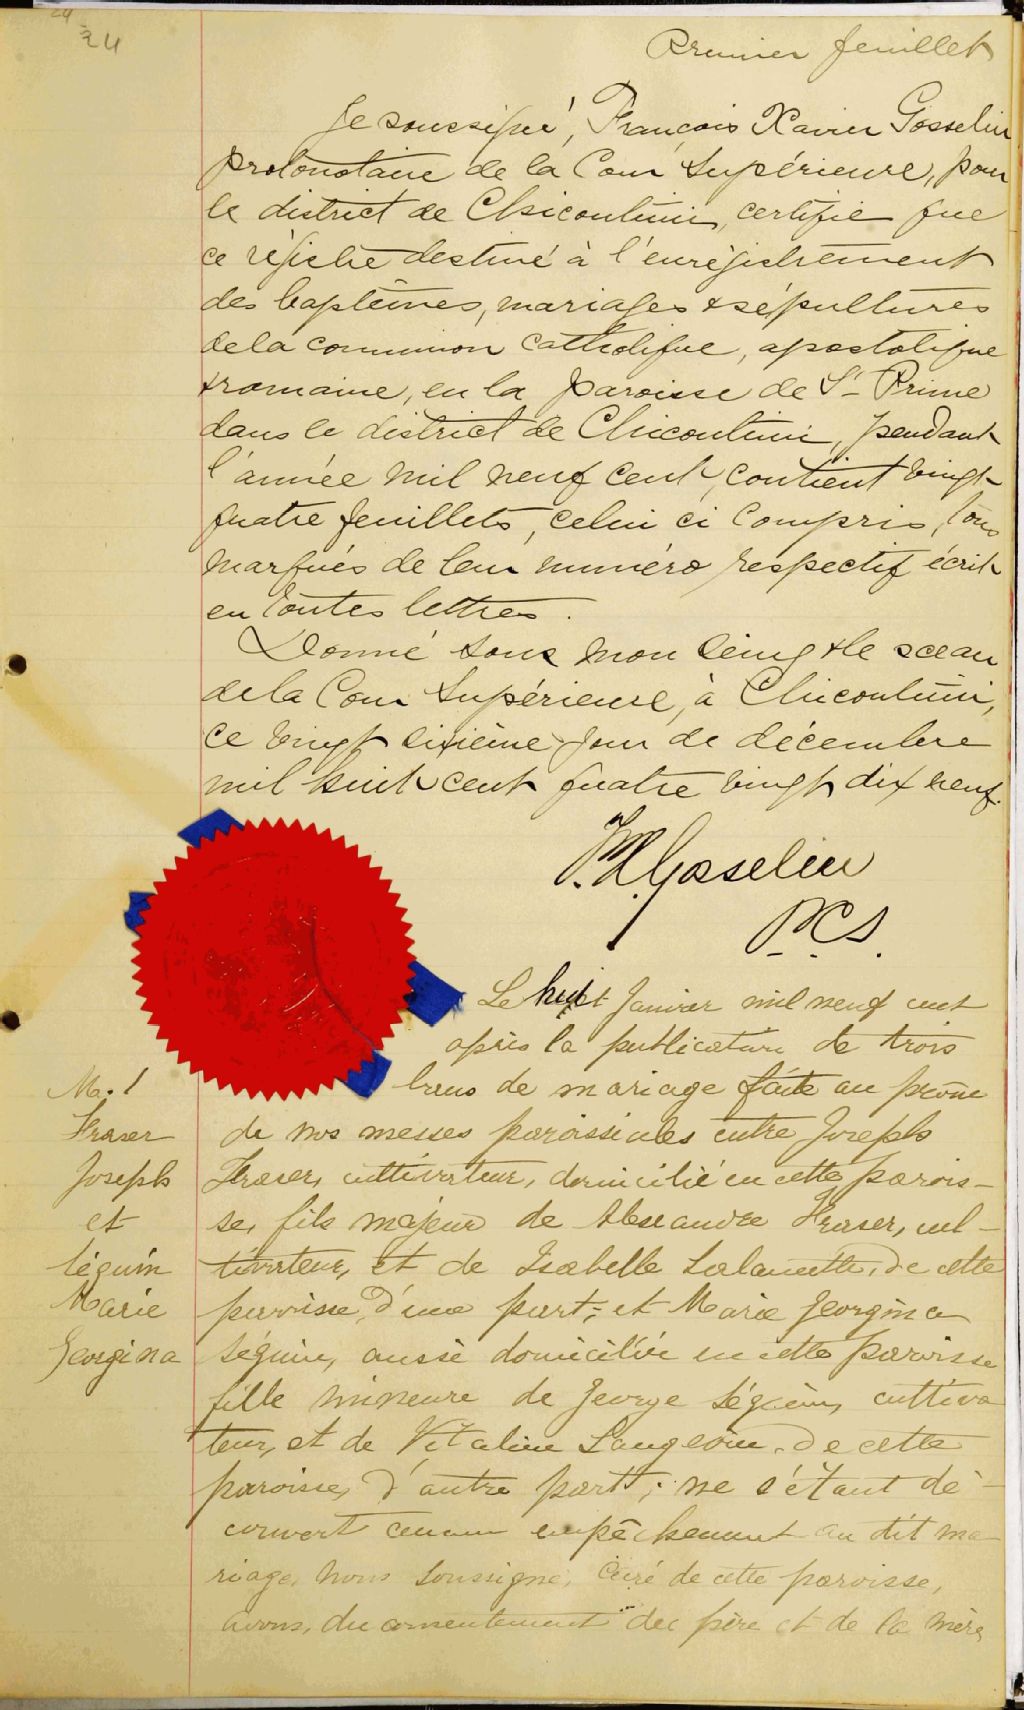 24
24
Premier feuillet
Je soussigné, François Xavier Gosselin
protonotaire de la Cour Supérieure, pour
le district de Chicoutimi, certifie que
ce régistre destiné à l'enrégistrement
des baptêmes, mariages & sépultures
de la communion catholique, apostolique
& romaine, en la paroisse de St Prime
dans le district de Chicoutimi, pendant
l'année mil neuf cent, contient vingt-
quatre feuillets, celui ci compris, tous
marqués de leur numéro respectif écrit
en toutes lettres.
Donné sous mon seing & le sceau
de la Cour Supérieure, à Chicoutimi,
ce vingt sixième jour de décembre
mil huit cent quatre vingt dix neuf.
F. X. Gosselin
P. C. S.
Le huit Janvier mil neuf cent
après la publication de trois
bans de mariage faite au prône
de nos messes paroissiales entre Joseph
Fraser, cultivateur, domicilié en cette parois-
se, fils majeur de Alexandre Fraser, cul-
tivateur, et de Isabelle, de cette
paroisse, d'une part; et Marie Georgina
Séguin, aussi domiciliée en cette paroisse
fille mineure de George Séguin, cultiva
teur, et de Vitaline Langevin, de cette
paroisse, d'autre part; ne s'étant dé-
couvert aucun empêchement au dit ma-
riage, nous soussigné, curé de cette paroisse,
avons, du consentement des père et de la mère
Ma. 1
Fraser
Joseph
et
Séguin
Marie
Georgina